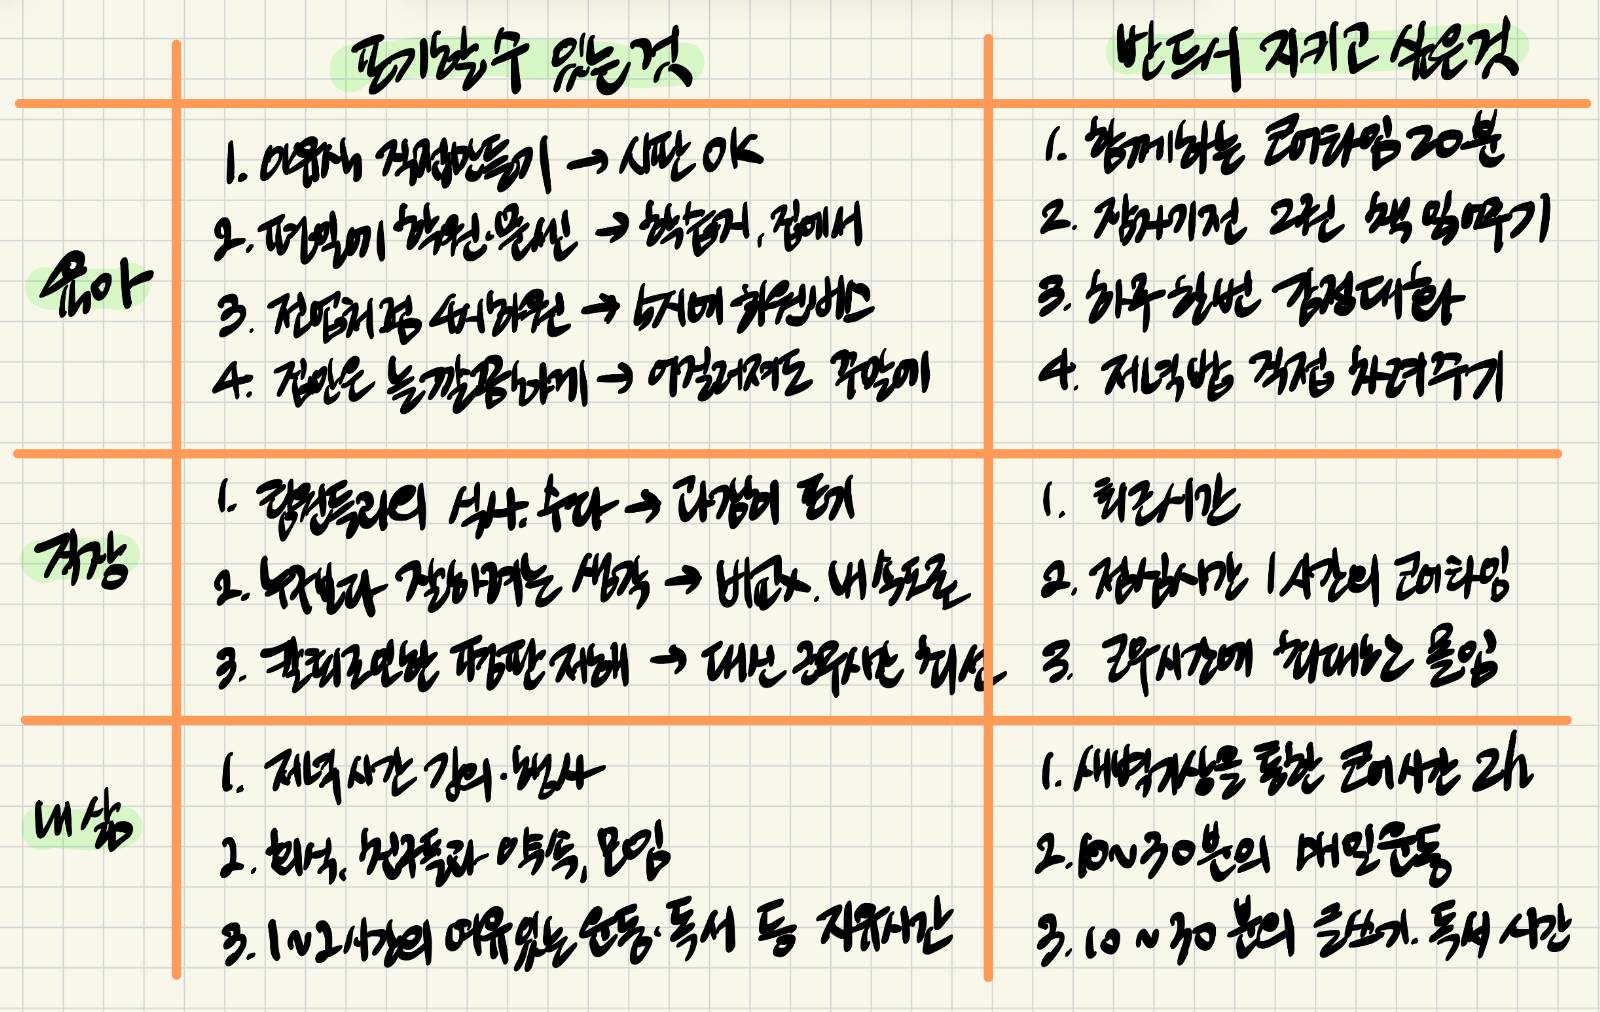 포기할 수 있는것
반드시 지키고 싶은것
육아
1. 이유식 직접만들기 → 시판 OK
2. 평일에 학원·문센 → 학습지, 집에서
3. 전업처럼 4시하원 → 5시에 하원버스
4. 집안은 늘 깔끔하게 → 어질러져도 주말에
1. 함께하는 코어타임 20분
2. 잠자기전 2권 책 읽어주기
3. 하루 한번 감정대화
4. 저녁밥 직접 차려주기
직장
1. 팀원들과의 식사. 수다 → 과감히 포기
2. 누구보다 잘하려는 생각 → 비교x. 내 속도로
3. 칼퇴로인한 평판 저해 → 대신 근무시간 최선
1. 퇴근시간
2. 점심시간 1시간의 코어타임
3. 근무시간에 최대한 몰입
내 삶
1. 저녁시간 강의·행사
2. 회식, 친구들과 약속, 모임
3. 1~2시간의 여유있는 운동·독서 등 자유시간
1. 새벽기상을 통한 코어시간 2h
2. 10~30분의 매일운동
3. 10~30분의 글쓰기·독서 시간